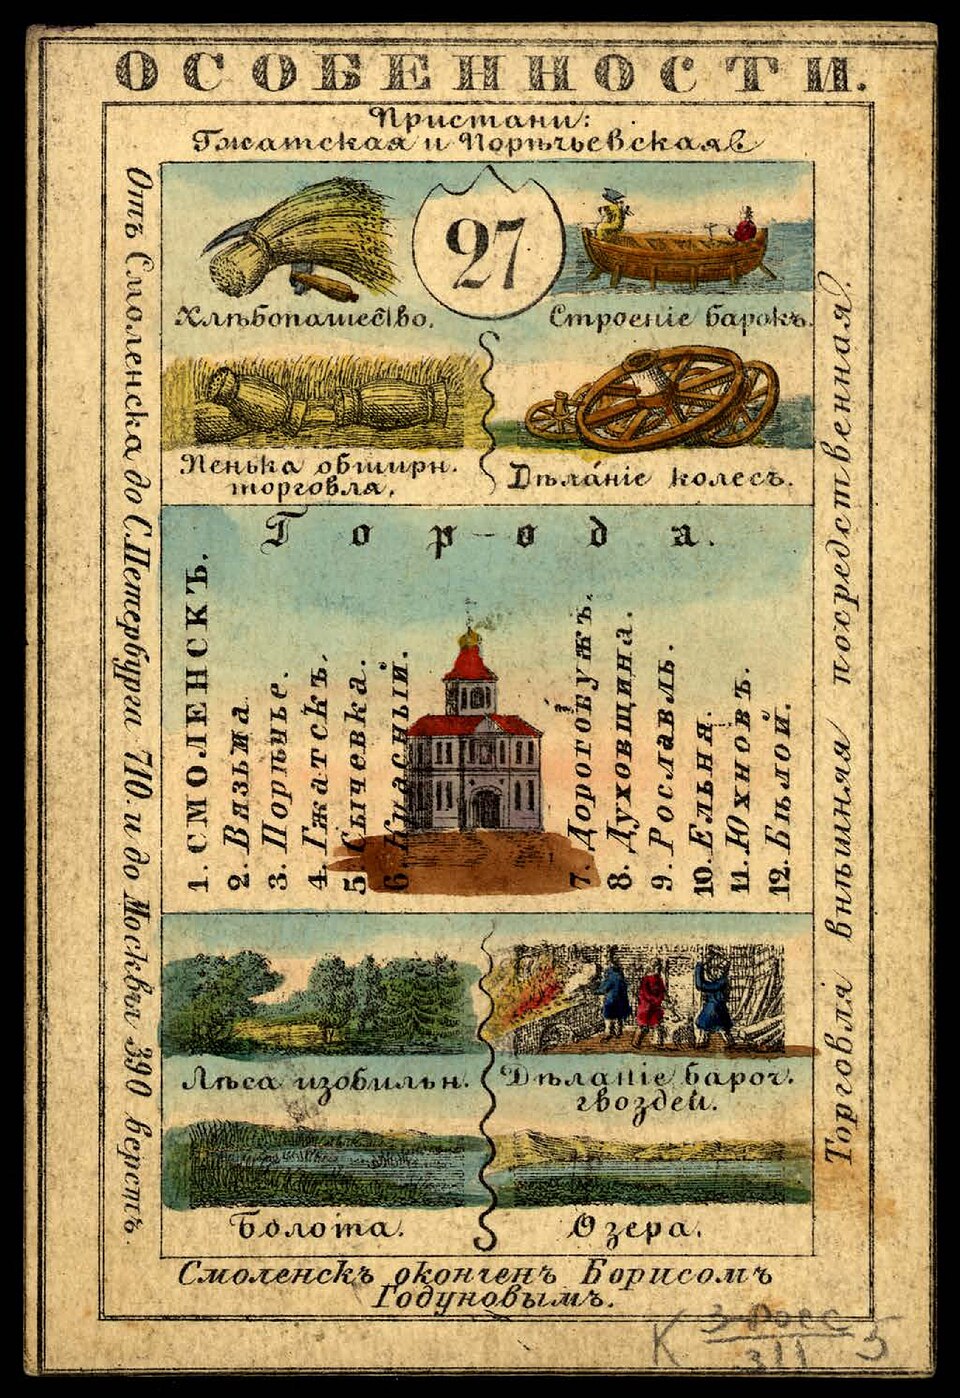 ОСОБЕННОСТИ.
Пристани:
Гжатская и Порѣчьевская
Отъ Смоленска до С.Петербурга 710. и до Москвы 390 верстъ.
27
Хлѣбопашество.
Строеніе барокъ.
Пенька обширн.
торговля.
Дѣланіе колесъ.
Города.
1. СМОЛЕНСКЪ.
2. Вязьма
3. Порѣчье.
4. Гжатскъ.
5. Сычевка.
6. Красный.
7. Дорогобужъ.
8. Духовщина.
9. Рославль.
10. Ельня.
11. Юхновъ.
12. Бѣлой.
Лѣса изобильн.
Дѣланіе бароч.
гвоздей.
Болота.
Озера.
Торговля внѣшняя посредственная.
Смоленскъ окончен Борисомъ
Годуновымъ.
К 3 Росс 5
311